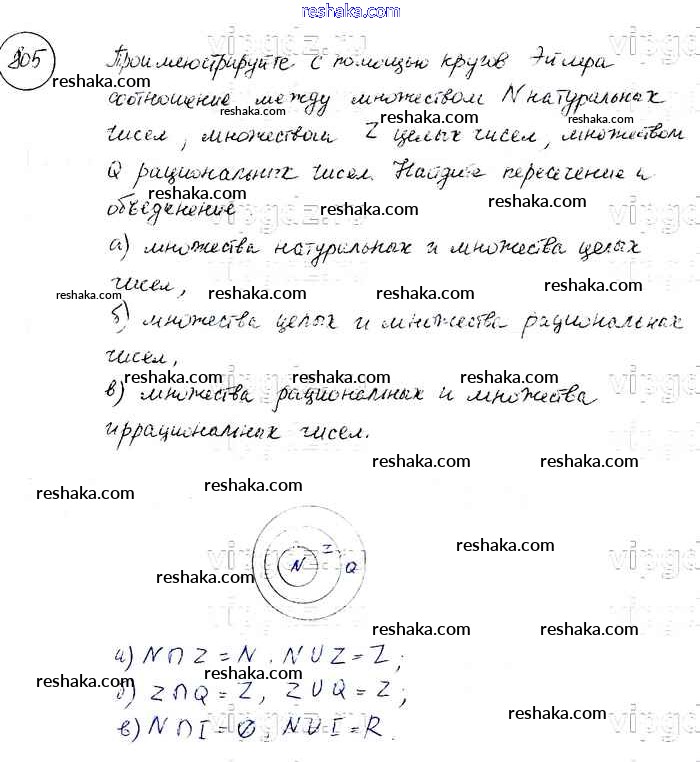 reshaka.com
805 Проиллюстрируйте с помощью кругов Эйлера
reshaka.com reshaka.com reshaka.com
соотношение между множеством N натуральных
reshaka.com reshaka.com
чисел, множеством Z целых чисел, множеством
reshaka.com reshaka.com
Q рациональных чисел. Найдите пересечение и
reshaka.com reshaka.com
объединение
reshaka.com reshaka.com
а) множества натуральных и множества целых
чисел,
reshaka.com reshaka.com reshaka.com reshaka.com
б) множества целых и множества рациональных
чисел,
reshaka.com reshaka.com reshaka.com
в) множества рациональных и множества
иррациональных чисел.
reshaka.com reshaka.com
reshaka.com reshaka.com
reshaka.com
N Z Q
reshaka.com
а) N ∩ Z = N, N U Z = Z;
reshaka.com reshaka.com
б) Z ∩ Q = Z, Z U Q = Z;
reshaka.com
в) N ∩ I = ∅, N U I = R.